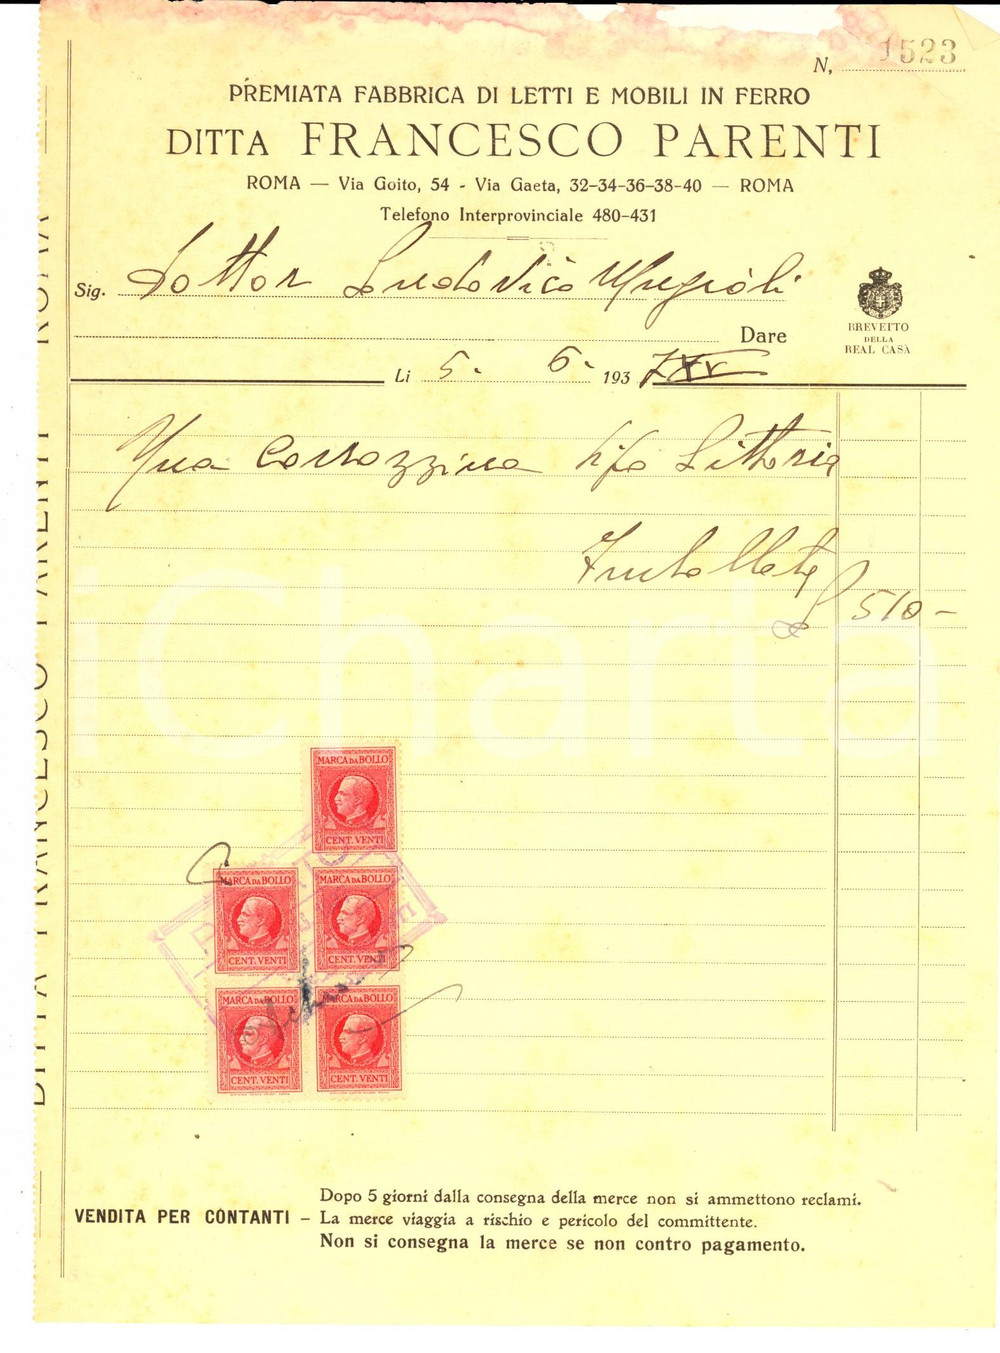 N, 1523
PREMIATA FABBRICA DI LETTI E MOBILI IN FERRO
DITTA FRANCESCO PARENTI
ROMA — Via Goito, 54 - Via Gaeta, 32-34-36-38-40 — ROMA
Telefono Interprovinciale 480-431
Sig. Dottor Ludovico
Dare
BREVETTO
DELLA
REAL CASA
Li 5. 6. 1937 XV
Una Carrozzina tipo Littoria
L 510-
iCharta
MARCA DA BOLLO
CENT. VENTI
MARCA DA BOLLO
CENT. VENTI
MARCA DA BOLLO
CENT. VENTI
MARCA DA BOLLO
CENT. VENTI
MARCA DA BOLLO
CENT. VENTI
DITTA FRANCESCO PARENTI ROMA
VENDITA PER CONTANTI – Dopo 5 giorni dalla consegna della merce non si ammettono reclami.
La merce viaggia a rischio e pericolo del committente.
Non si consegna la merce se non contro pagamento.